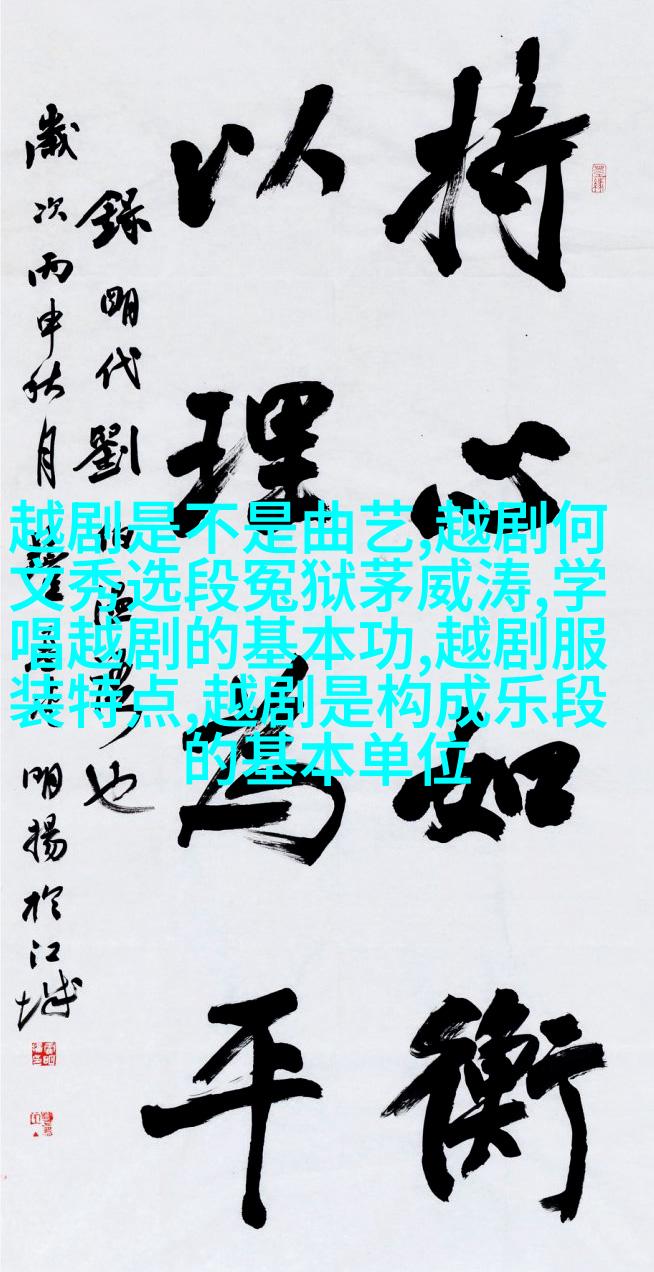 持心如衡
以理為平
錄明代劉伯溫也
歲次丙申秋月明揚於江城
越剧是不是曲艺,越剧何
文秀选段冤狱茅威涛,学
唱越剧的基本功,越剧服
装特点,越剧是构成乐段
的基本单位